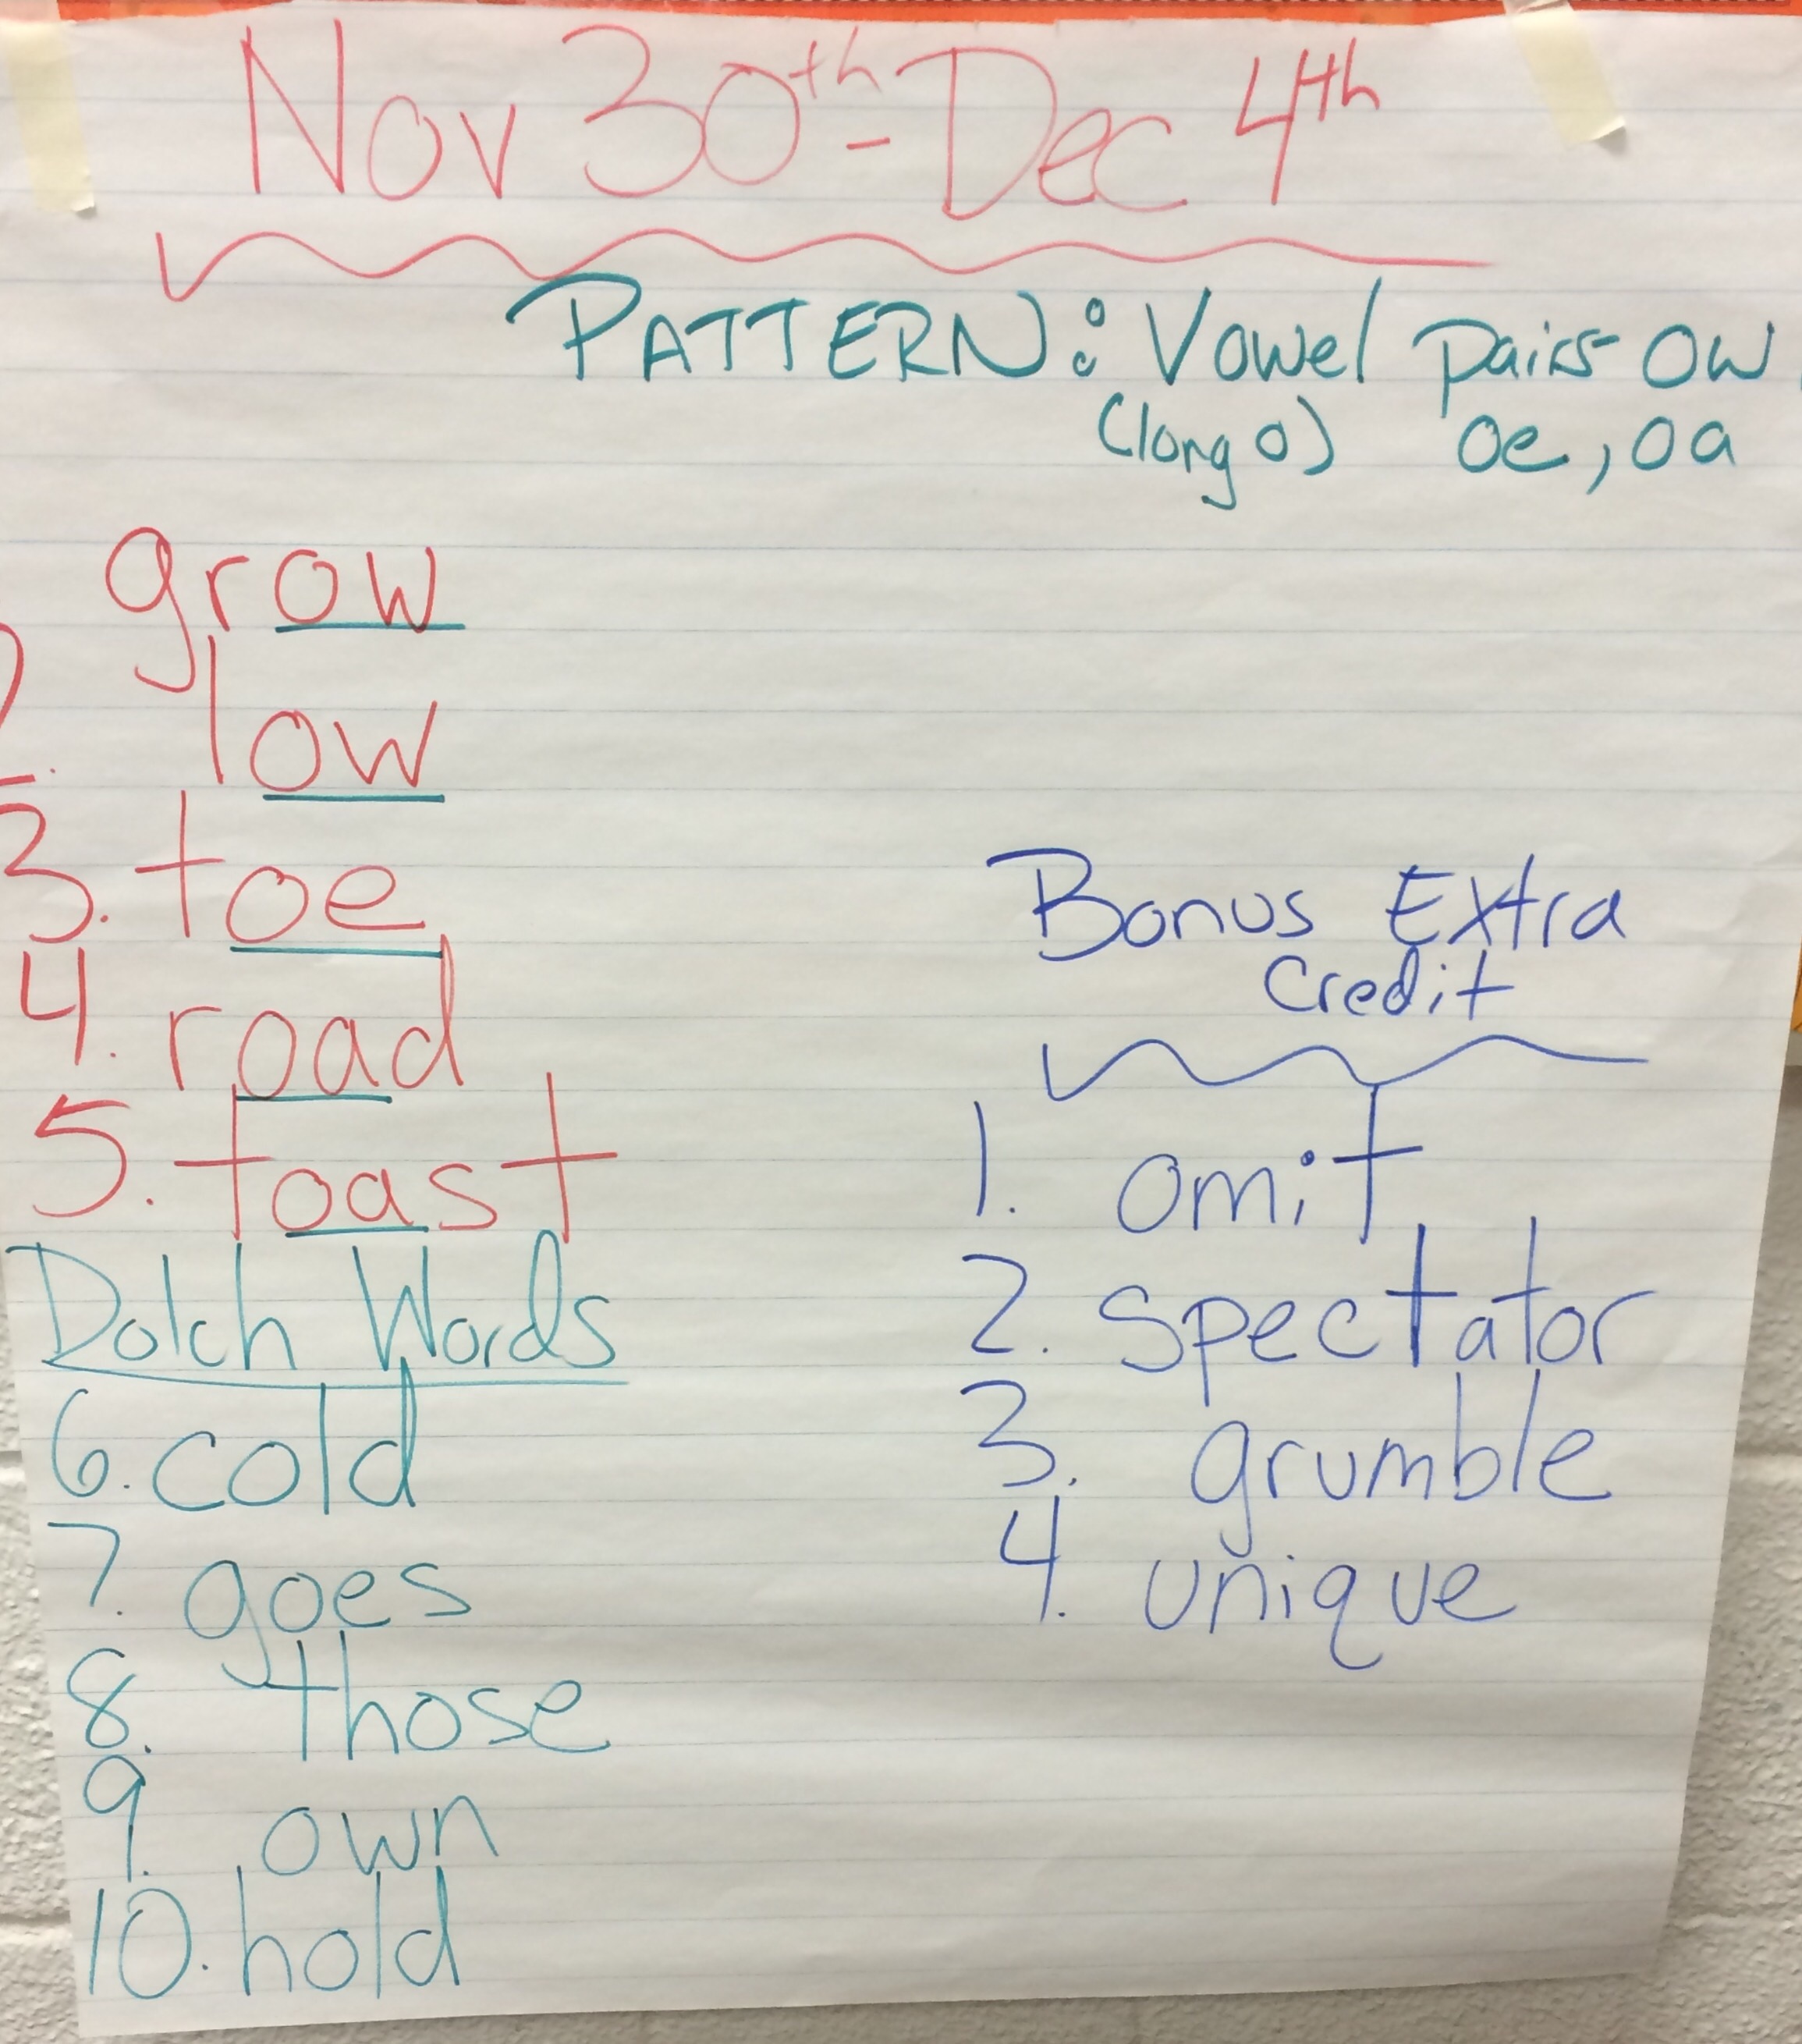 Nov 30th - Dec 4th
PATTERN: Vowel pairs- ow
(long o) oe, oa
grow
2. low
3. toe
4. road
5. toast
Dolch Words
6. cold
7. goes
8. those
9. own
10. hold
Bonus Extra
Credit
1. omit
2. spectator
3. grumble
4. unique